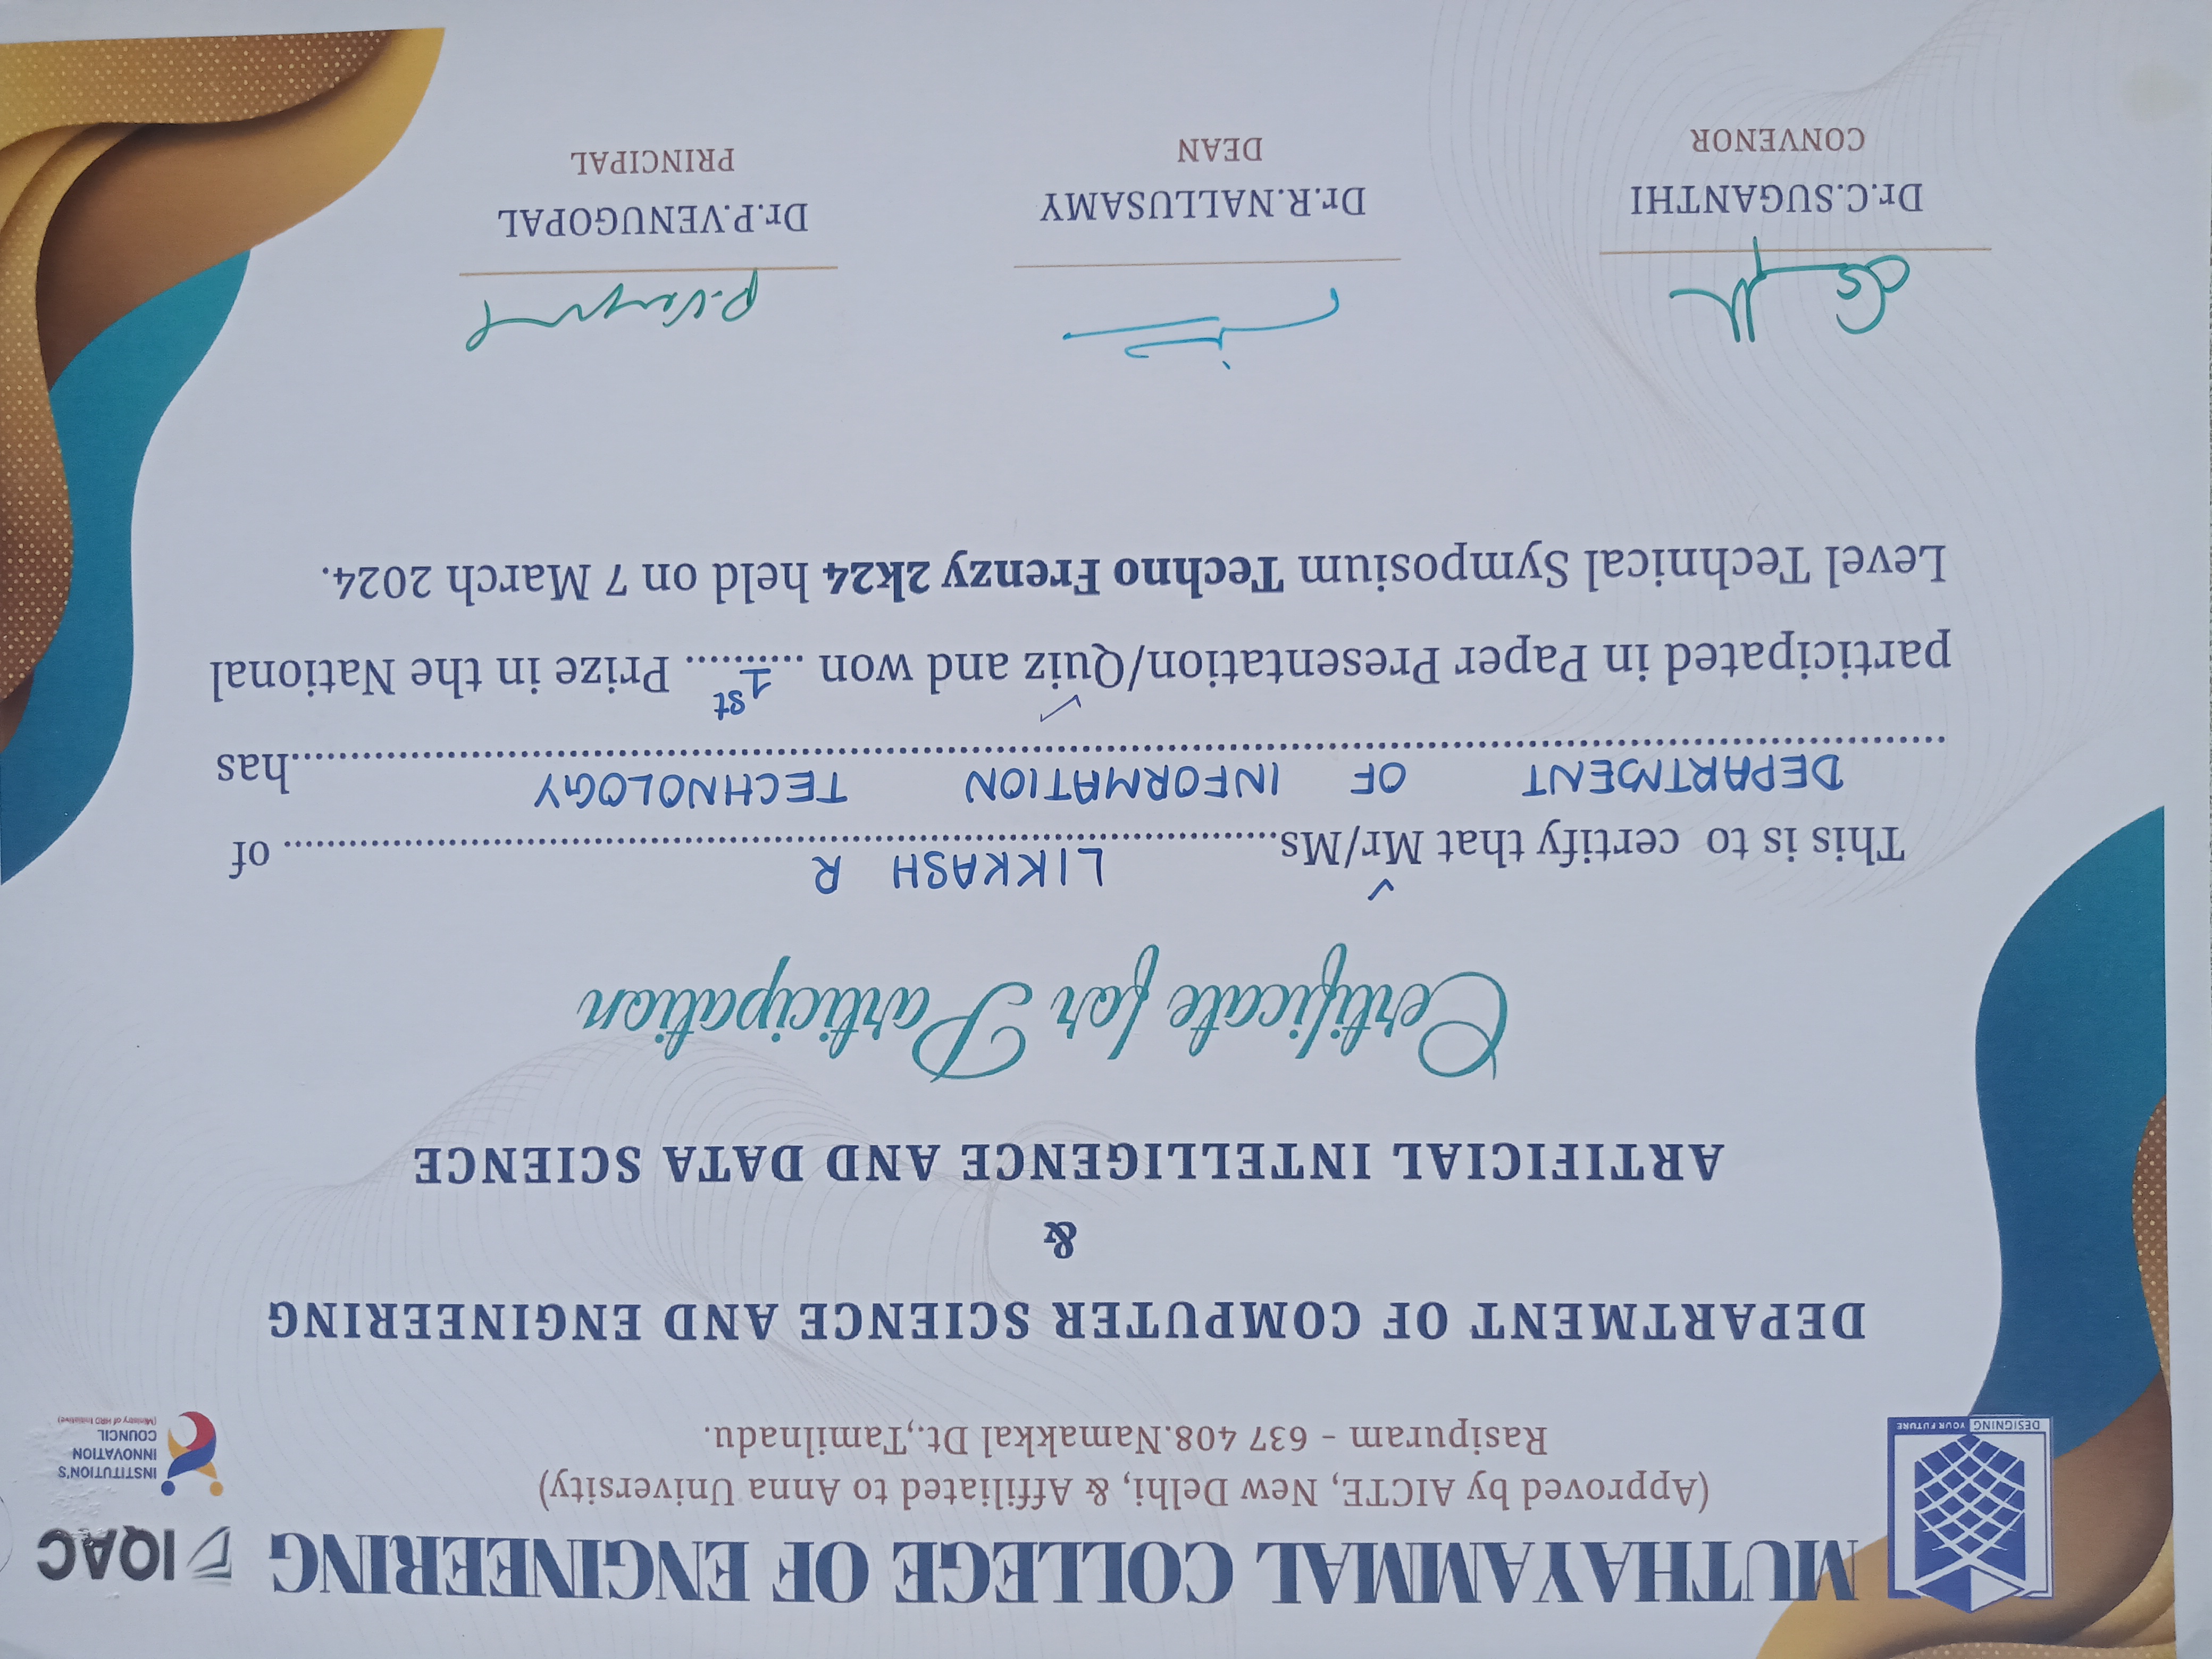 MUTHAYAMMAL COLLEGE OF ENGINEERING
IQAC
(Approved by AICTE, New Delhi, & Affiliated to Anna University)
Rasipuram - 637 408.Namakkal Dt.,Tamilnadu.
DESIGNING YOUR FUTURE
INSTITUTION'S
INNOVATION
COUNCIL
(Ministry of HRD Initiative)
DEPARTMENT OF COMPUTER SCIENCE AND ENGINEERING
&
ARTIFICIAL INTELLIGENCE AND DATA SCIENCE
Certificate for Participation
This is to certify that Mr/Ms. LIKKASH R of
DEPARTMENT OF INFORMATION TECHNOLOGY has
participated in Paper Presentation/Quiz and won 1st Prize in the National
Level Technical Symposium Techno Frenzy 2k24 held on 7 March 2024.
P. Venugopal
Dr.C.SUGANTHI
CONVENOR
Dr.R.NALLUSAMY
DEAN
Dr.P.VENUGOPAL
PRINCIPAL